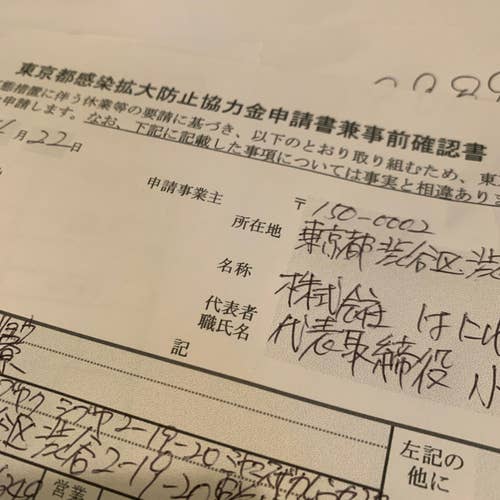 東京都感染拡大防止協力金申請書兼事前確認書
態措置に伴う休業等の要請に基づき、以下のとおり取り組むため、東
申請します。なお、下記に記載した事項については事実と相違ありま
月22日
申請事業主
〒150-0002
所在地
東京都渋谷区渋
名称
株式会社 はに
代表者
職氏名
代表取締役 小
記
寮
シブヤ2-19-20
区渋谷2-19-20
左記の
他に
営業